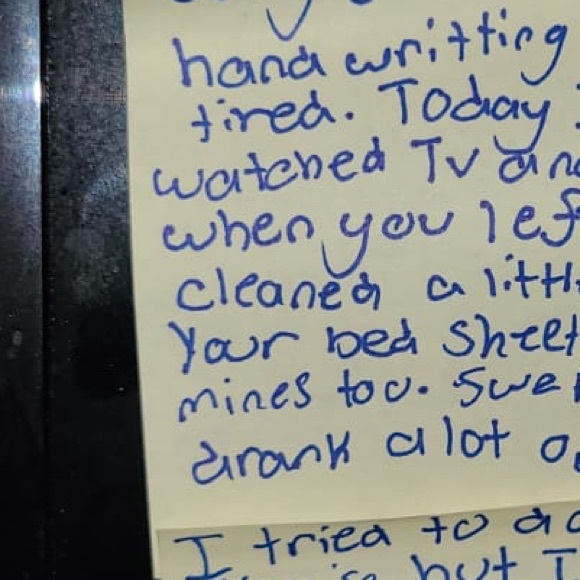 hand writting
tired. Today
watched Tv
when you
cleaned a
Your bed
mines too.
drank a lot
I tried to
but I